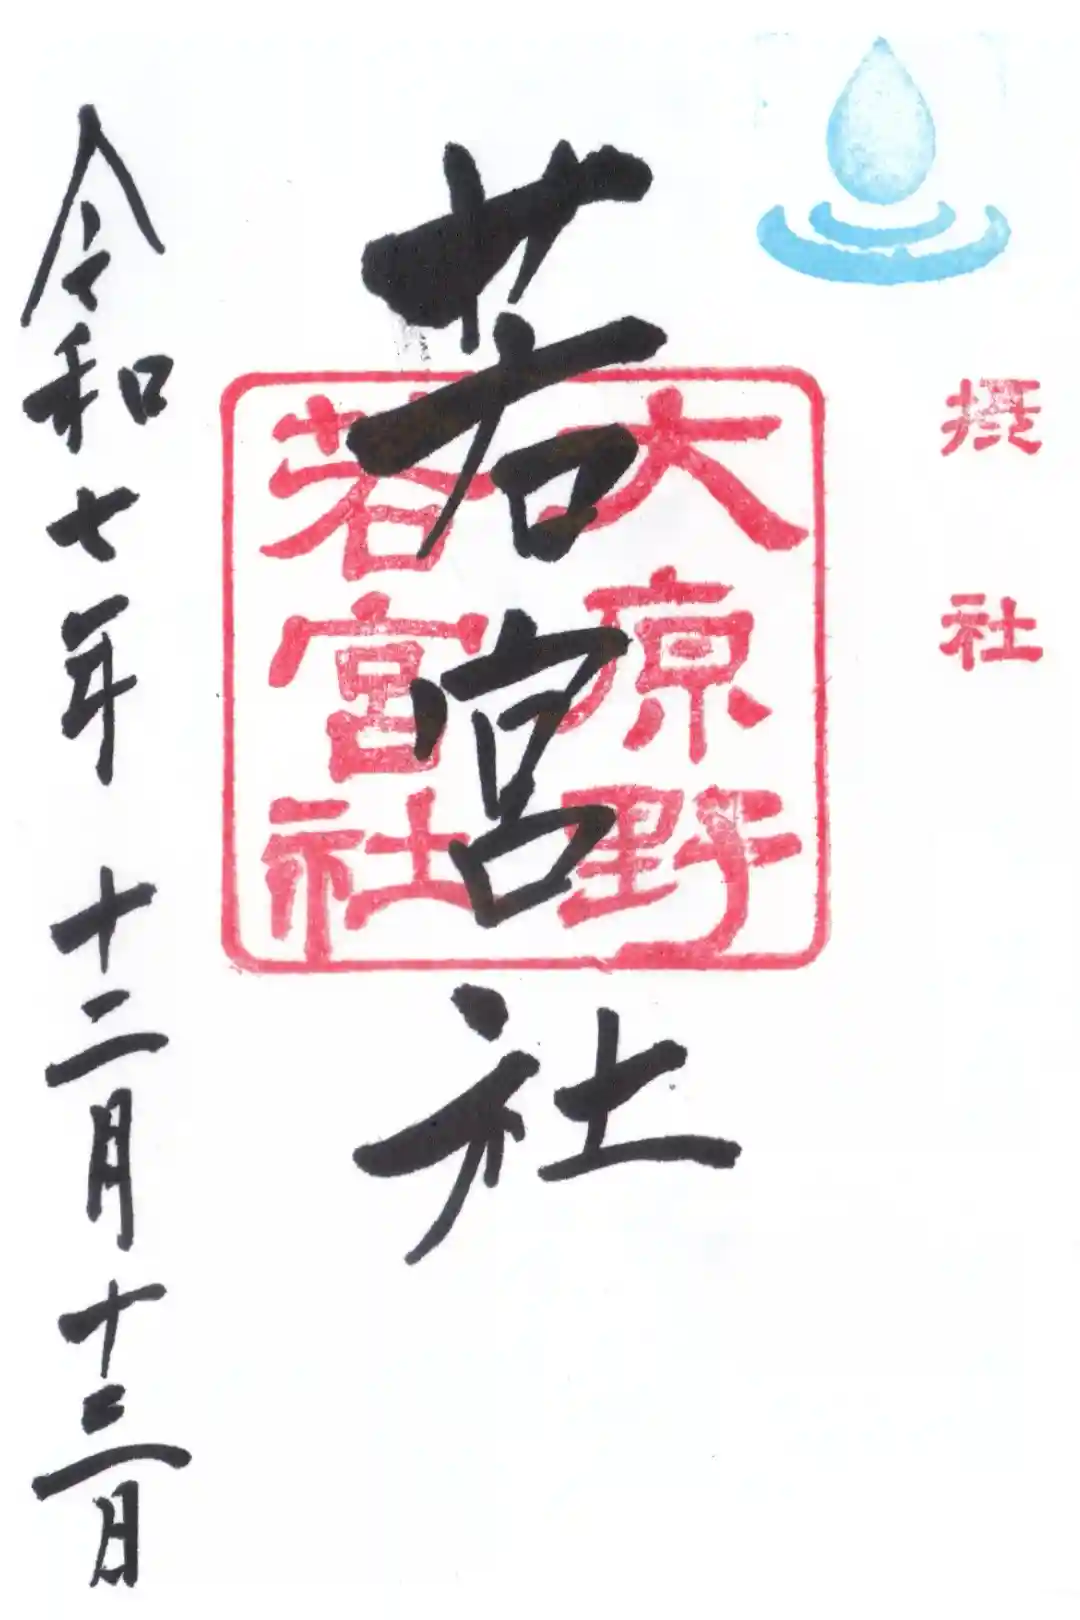 摂社
若宮社
大原野
若宮社
令和七年 十二月十三日